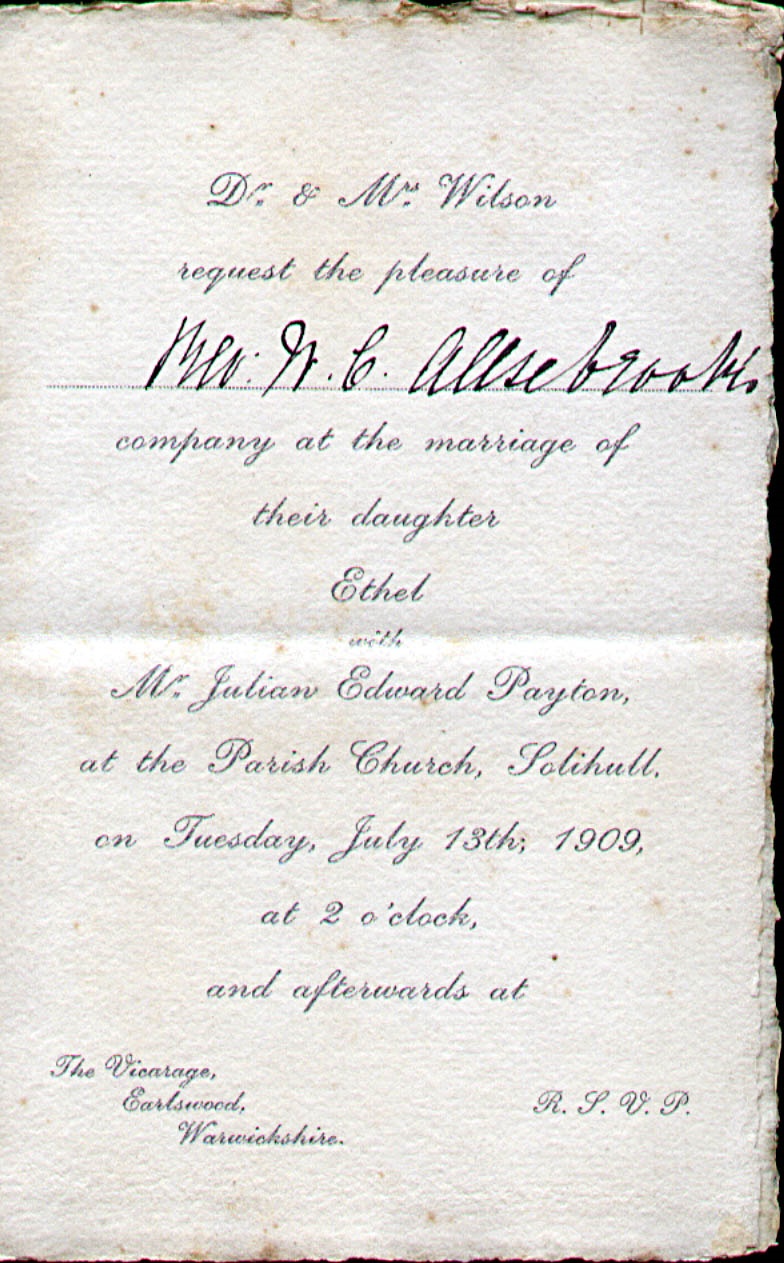 Dr. & Mrs. Wilson
request the pleasure of
Rev: W. C. Allsebrook's
company at the marriage of
their daughter
Ethel
with
Mr. Julian Edward Payton,
at the Parish Church, Solihull,
on Tuesday, July 13th, 1909,
at 2 o'clock,
and afterwards at
The Vicarage,
Earlswood,
Warwickshire.
R. S. V. P.